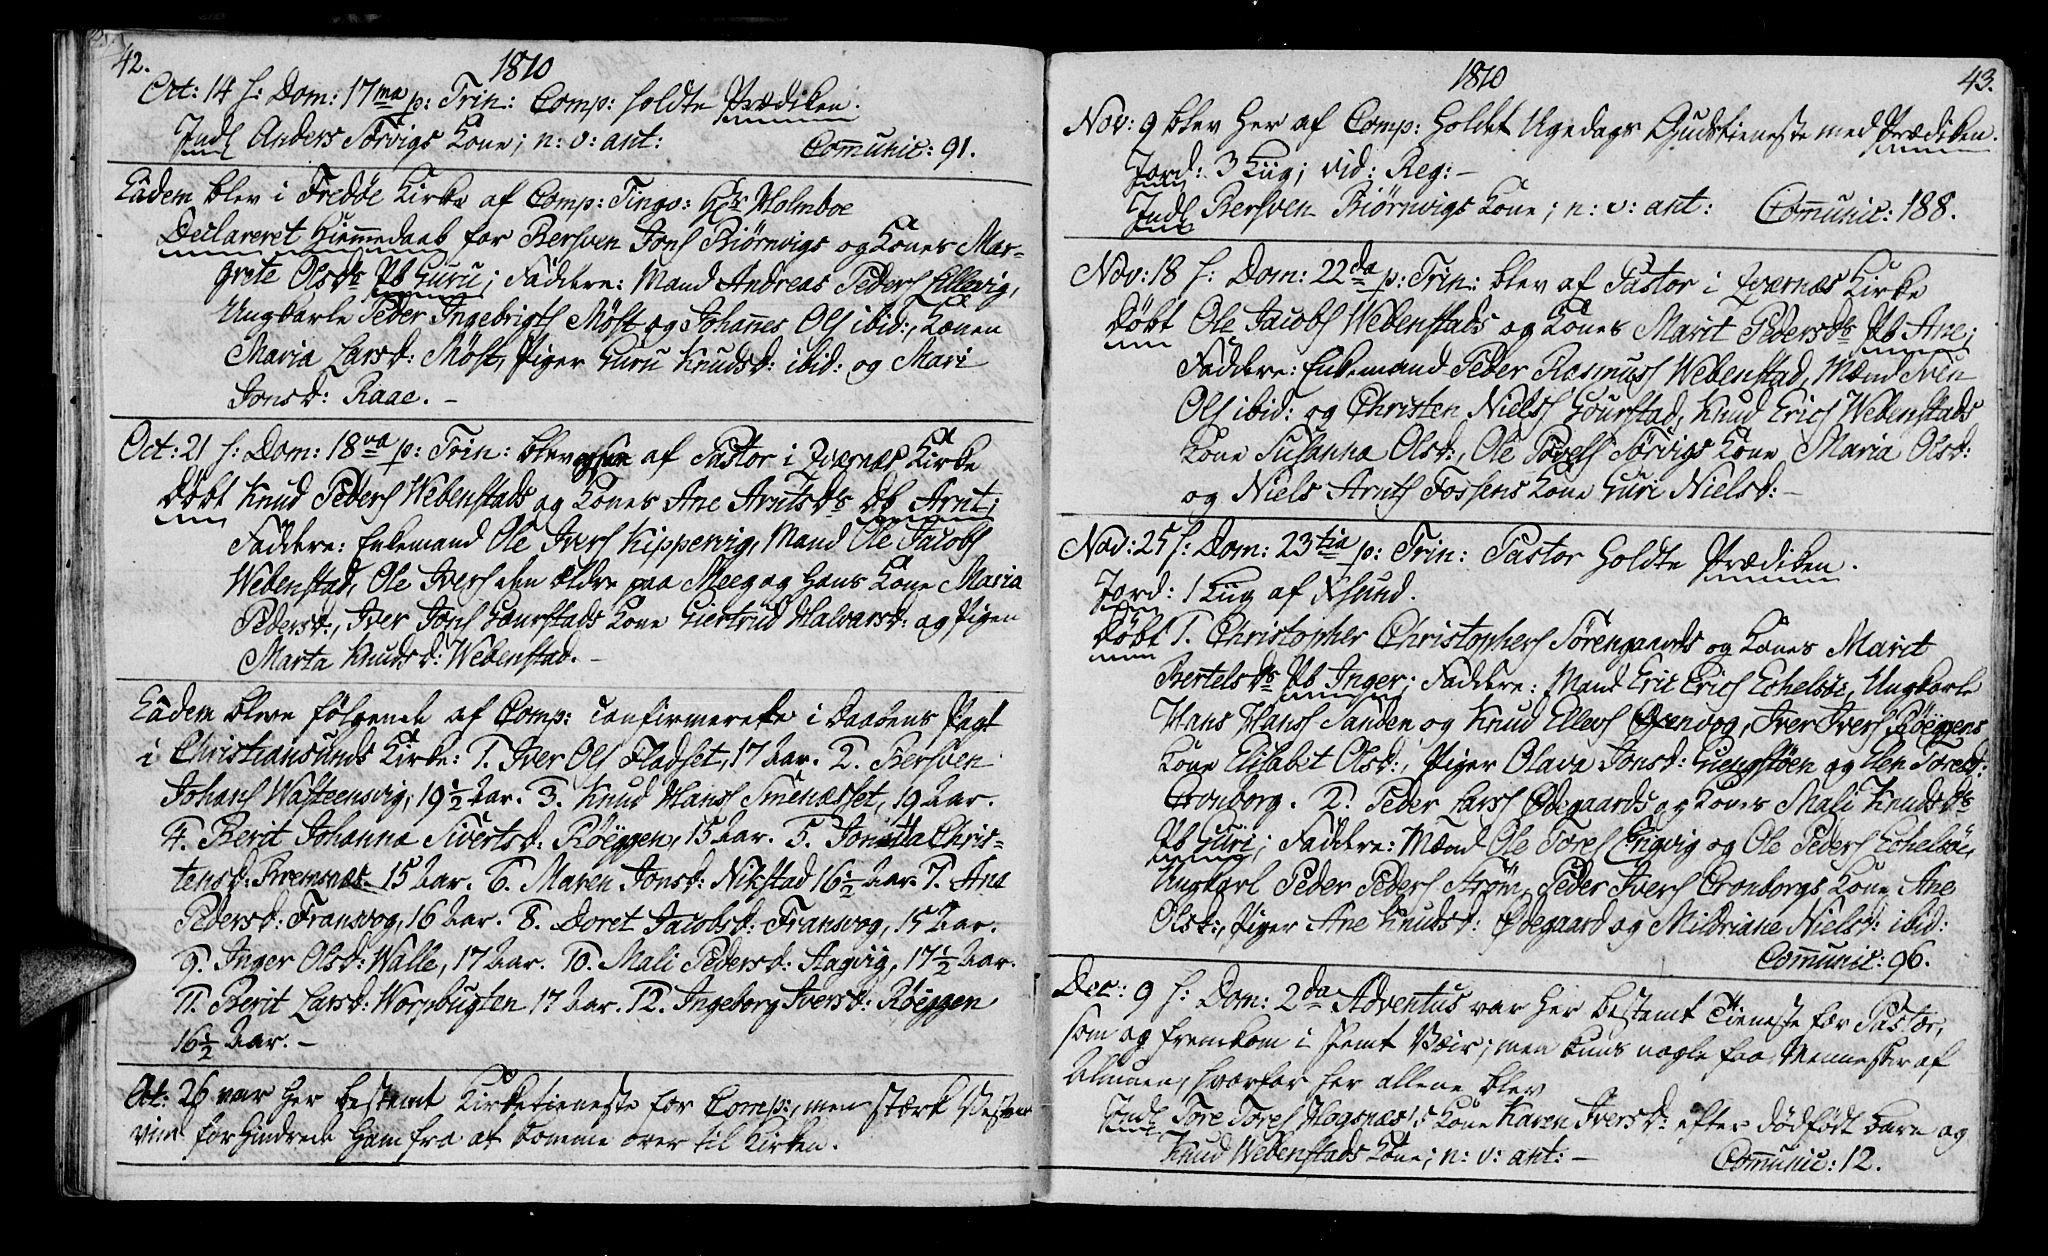 42.
1810
Oct: 14 f: Dom: 17ma p: Trin: Comp: holdte Prædiken.
Indl Anders Torvigs Kone; n: v: ant: Com̅unic: 91.
Eâdem blev i Fredøe Kirke af Comp: Tingv: Hr Holmboe
Declareret Hiem̅edaab for Bersven Jons Biørnvigs og Kones Mar-
grete Olsdr Pb Guru; Faddere: Mand Andreas Peders Ellevig,
Ungkarle Peder Ingebrigts Møst og Johan̅es Ols ibid:, Konen
Maria Larsd: Møst, Piger Guru Knudsd: ibid: og Mari
Jonsd: Raae. –
Oct: 21 f: Dom: 18va p: Trin: blev af Pastor i Qværnæs Kirke
døbt Knud Peders Webenstads og Kones Ane Arntsdr Db Arnt;
Faddere: Enkemand Ole Ivers Kippervig, Mand Ole Jacobs
Webenstad, Ole Ivers den ældre paa Meeg og hans Kone Maria
Pedersd:, Iver Jons Gaurstads Kone Giertrud Halvorsd: og Pigen
Marta Knudsd: Webenstad. –
Eâdem bleve følgende af Comp: confirmerede i Daabens Pagt
i Christiansunds Kirke: 1. Iver Ols Fladset, 17 Aar. 2. Bersven
Johans Wasteensvig, 19½ Aar. 3. Knud Hans Smenæsset, 19 Aar.
4. Berit Johanna Sivertsd: Røeggen, 15 Aar. 5. Jonetta Chris-
tensd: Bremsnæs. 15 Aar. 6. Maren Jonsd: Nikstad 16½ Aar. 7. Ane
Pedersd: Fransvog, 16 Aar. 8. Doret Jacobsd: Fransvog, 15 Aar.
9. Inger Olsd: Walle, 17 Aar. 10. Mali Pedersd: Aagvig, 17½ Aar.
11. Berit Larsd: Worpbugten 17 Aar. 12. Ingeborg Iversd: Røeggen
16½ Aar. –
Oct: 26 var her bestemt Kirketieneste for Comp:, men stærk Vesten
vind forhindrede ham fra at komme over til Kirken.
1810
43.
Nov: 9 blev her af Comp: holdet Ugedags Gudstieneste med Prædiken.
Jord: 3 Liig; vid: Reg: –
Indl Bersven Biørnvigs Kone; n: v: ant: Com̅unic: 188.
Nov: 18 f: Dom: 22da p: Trin: blev af Pastor i Qværnæs Kirke
døbt Ole Jacobs Webenstads og Kones Marit Pedersdr Pb Ane;
Faddere: Enkemand Peder Rasmuss Webenstad, Mænd Sven
Ols ibid: og Christen Niels Gourstad, Knud Erics Webenstads
Kone Susanna Olsd:, Ole Povels Torvigs Kone Maria Olsd:
og Niels Arnts Fossens Kone Guri Nielsd: –
Nov: 25 f: Dom: 23tia p: Trin: Pastor holdte Prædiken.
Jord: 1 Liig af Xsund.
Døbt 1. Christopher Christophers Sørengaards og Kones Marit
Bertelsdr Pb Inger; Faddere: Mand Eric Erics Echelsøe, Ungkarle
Hans Hanss Sanden og Knud Ellevs Oxenvog, Iver Ivers Røeggens
Kone Elisabet Olsd:, Piger Olava Jonsd: Giengstøen og Elen Toresd:
Cronborg. 2. Peder Larss Ødegaards og Kones Mali Knudsdr
Pb Guri; Faddere: Mænd Ole Tores Engvig og Ole Peders Echelsøe,
Ungkarl Peder Peders Strøm, Peder Ivers Cronborgs Kone Ane
Olsd:, Piger Ane Knudsd: Ødegaard og Mildriane Nielsd: ibid:
Com̅unic: 96.
Dec: 9 f: Dom: 2da Adventus var her bestemt Tieneste for Pastor,
som og fremkom i slemt Veir; men kuns nogle faa Mennesker af
Almuen, hvorfor her allene blev
Indl Tore Tores Hogsnæs's Kone Karen Iversd: efter dødfødt Barn og
Knud Webenstads Kone; n: v: ant: – Com̅unic: 12.